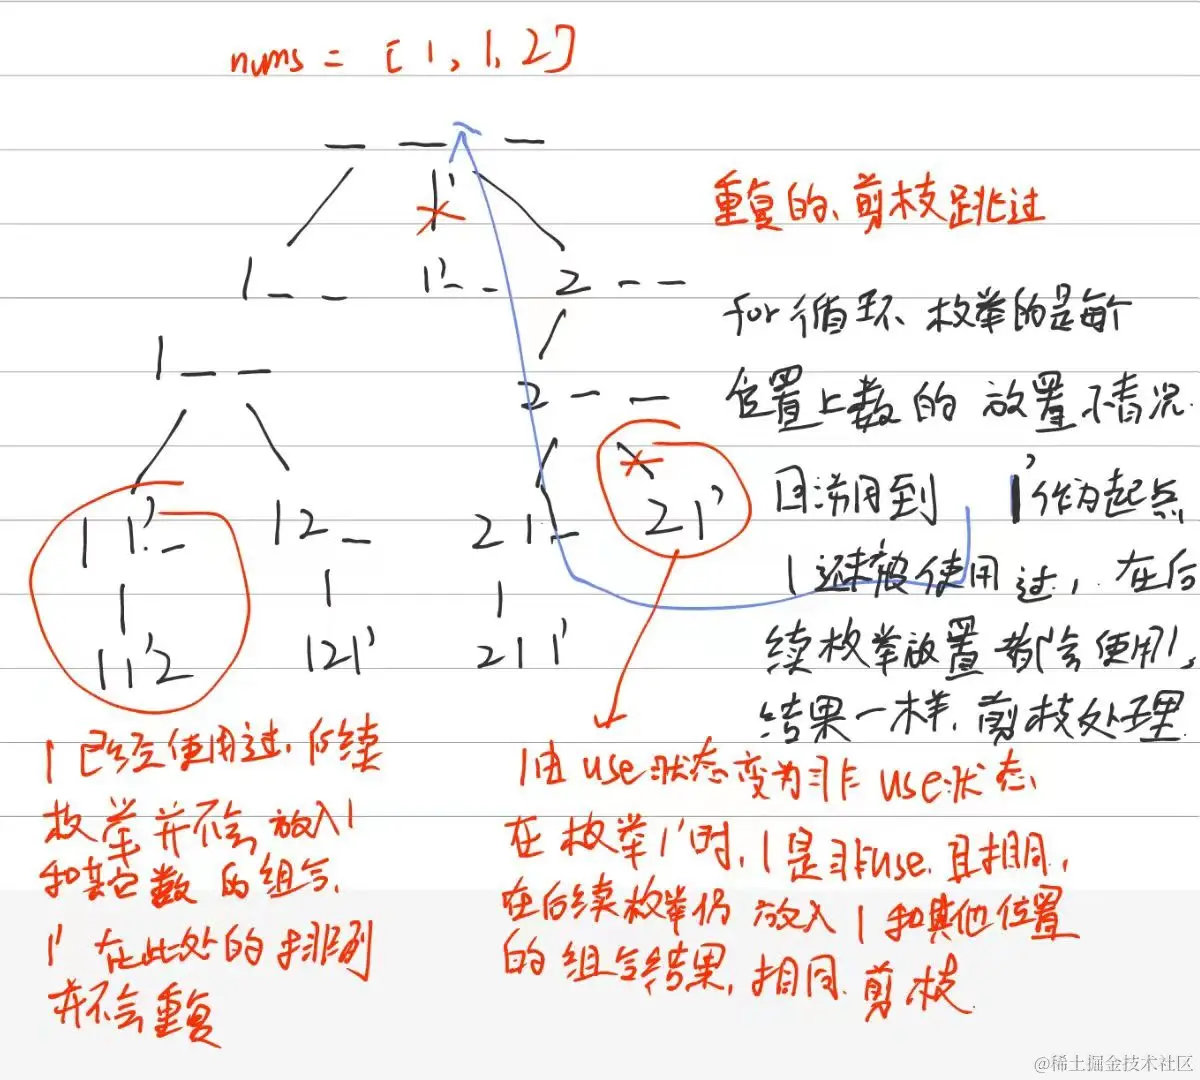 nums = [1, 1, 2]
— — —
1'
重复的、剪枝跳过
1 _ _
1' _ _
2 _ _
for循环、枚举的是每个
1 _ _
2 _ _
位置上数的放置情况.
回溯用到 1'作为起点
1 1' _
1 2 _
2 1 _
2 1'
1还未被使用过，在后
续枚举放置都会使用1,
1 1' 2
1 2 1'
2 1 1'
结果一样. 剪枝处理
1 已经使用过. 后续
枚举并不会放入1
和其它数的组合.
1' 在此处的排列
并不会重复
1由use状态变为非use状态
在枚举1'时, 1是非use. 且相同,
在后续枚举仍放入1和其他位置
的组合结果, 相同. 剪枝
@稀土掘金技术社区